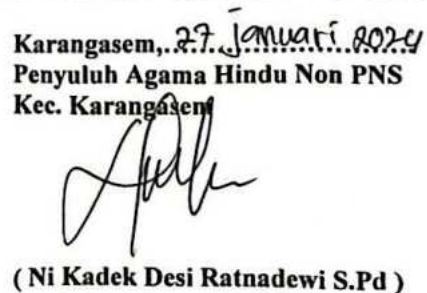 Karangasem,..27 januari 2024
Penyuluh Agama Hindu Non PNS
Kec. Karangasem
( Ni Kadek Desi Ratnadewi S.Pd )